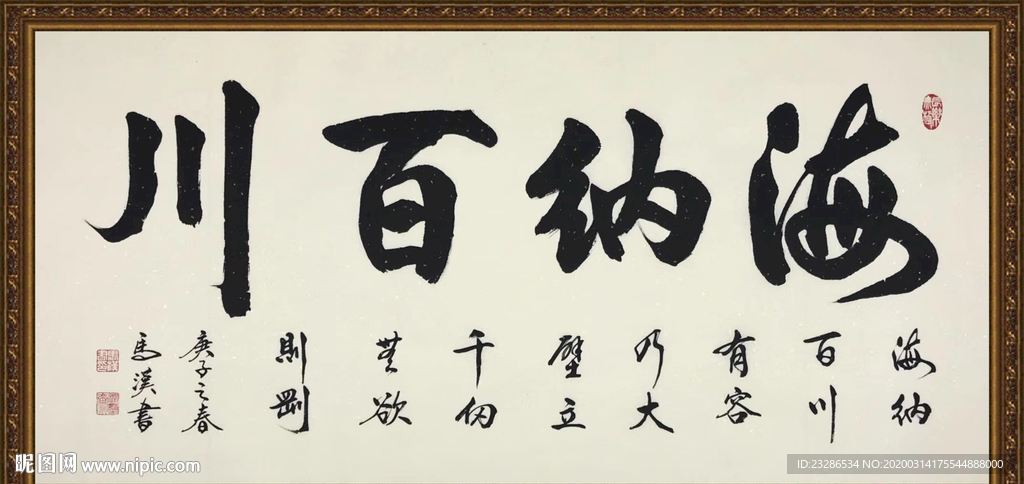 海纳百川
海纳
百川
有容
乃大
壁立
千仞
無欲
則剛
庚子之春
馬溪書
昵图网 www.nipic.com
ID:23286534 NO:20200314175544888000